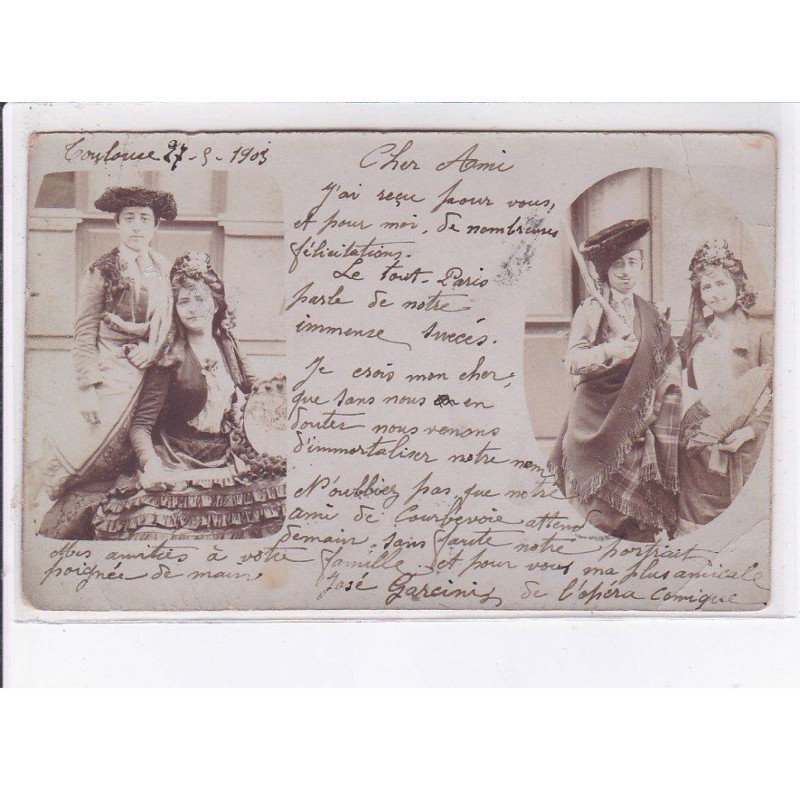 Toulouse 27-5-1903
Cher Ami
J'ai reçu pour vous,
et pour moi, de nombreuses
félicitations.
Le tout-Paris
parle de notre
immense succès.
Je crois mon cher,
que sans nous en
douter nous venons
d'immortaliser notre nom
N'oubliez pas que notre
ami de Courbevoie attend
demain, sans faute notre portrait
Mes amitiés à votre famille et pour vous ma plus amicale
poignée de main José Garcini de l'opéra Comique